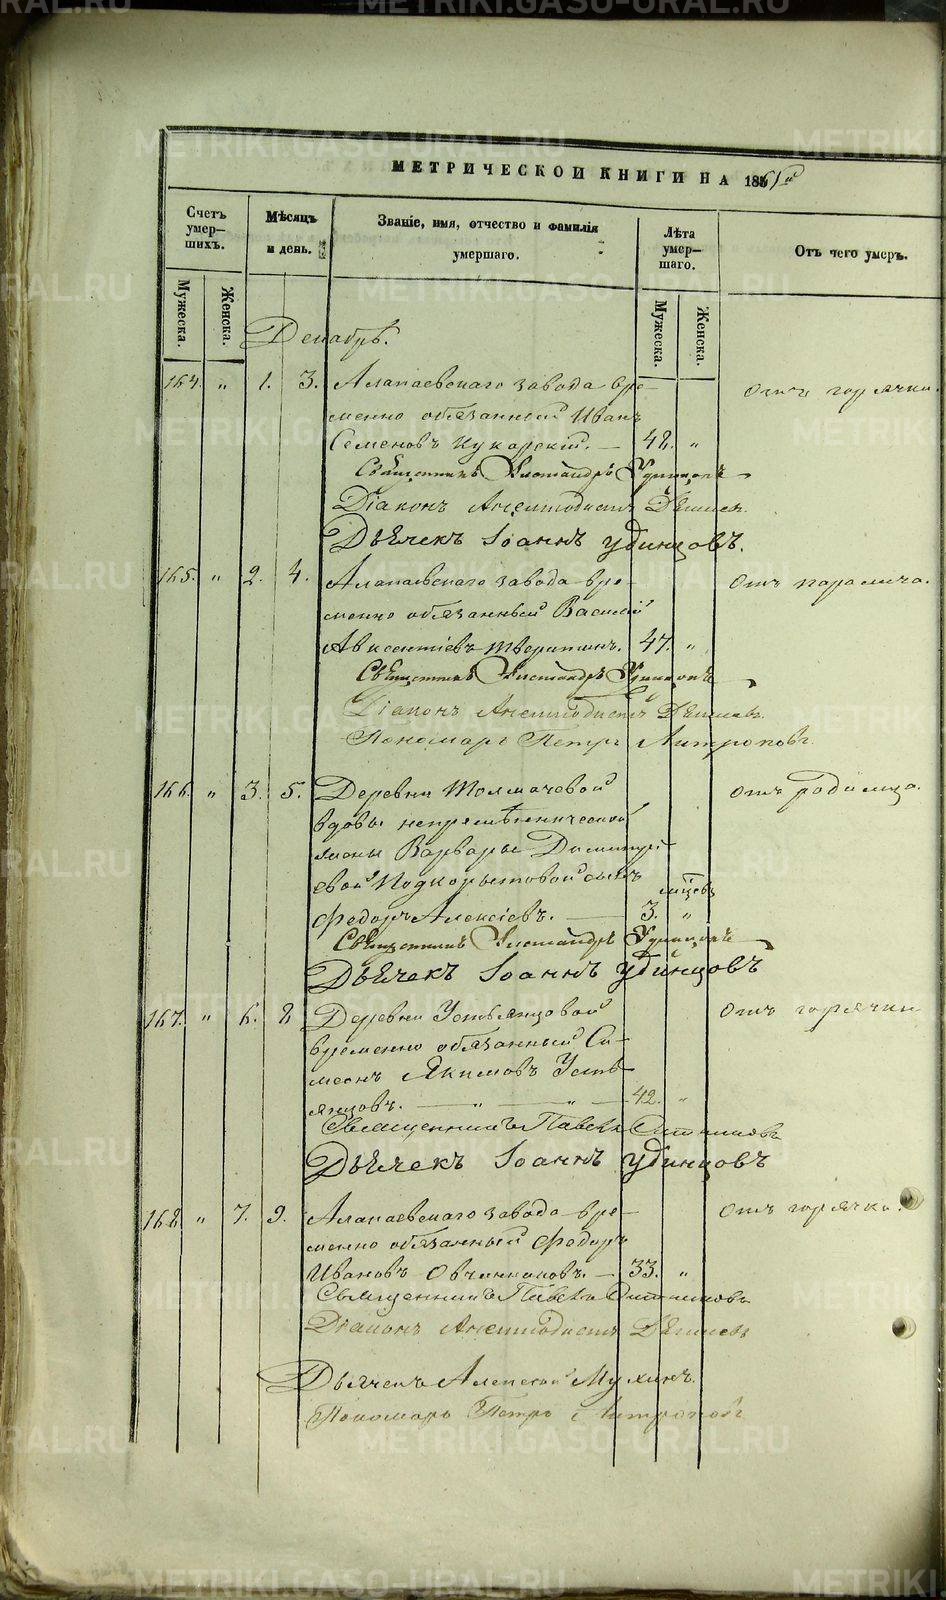 METRIKI.GASO-URAL.RU
МЕТРИЧЕСКОЙ КНИГИ НА 1861й
Счетъ умер-шихъ.
Мѣсяцъ и день.
Званіе, имя, отчество и фамилія умершаго.
Лѣта умер-шаго.
Отъ чего умеръ.
Мужеска.
Женска.
Мужеска.
Женска.
Декабрь.
164. " 1. 3. Алапаевскаго завода вре- отъ горячки.
менно обязанный Иванъ
Семеновъ Кукарскій. — 48. "
Священникъ Александръ Удинцовъ
Діаконъ Анемподистъ
Дьячекъ Іоаннъ Удинцовъ.
165. " 2. 4. Алапаевскаго завода вре- Отъ паралича.
менно обязанный Василій
Авксентіевъ Тверитинъ. 47. "
Священникъ Александръ Удинцовъ
Діаконъ Анемподистъ
Пономарь Петръ Антроповъ
166. " 3. 5. Деревни Толмачевой отъ родимца.
вдовы непремѣннической
жены Варвары Димитрі-
евой Подкорытовой сынъ
мѣсяц.
Федоръ Алексіевъ. — 3. "
Священникъ Александръ Удинцовъ
Дьячекъ Іоаннъ Удинцовъ
167. " 6. 8 Деревни Устьянцовой отъ горячки
временно обязанный Си-
меонъ Якимовъ Усть-
янцовъ. — " — " — 42. "
Священникъ Павелъ
Дьячекъ Іоаннъ Удинцовъ
168 " 7. 9. Алапаевскаго завода вре- Отъ горячки.
менно обязанный Федоръ
Ивановъ Овчинниковъ. — 33. "
Священникъ Павелъ
Діаконъ Анемподистъ
Дьячекъ Алексей Мухинъ.
Пономарь Петръ Антроповъ